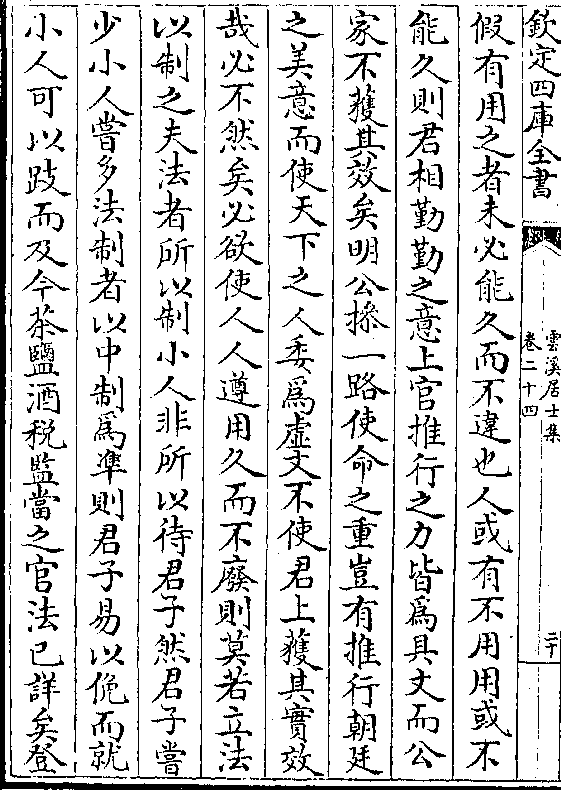 欽定四庫全書
雲溪居士集
卷二十四
二十
假有用之者未必能久而不違也人或有不用用或不
能久則君相勤勤之意上官推行之力皆爲具文而公
家不獲其效矣明公摻一路使命之重豈有推行朝廷
之美意而使天下之人委爲虚文不使君上獲其實效
哉必不然矣必欲使人人遵用久而不廢則莫若立法
以制之夫法者所以制小人非所以待君子然君子嘗
少小人嘗多法制者以中制爲準則君子易以俛而就
小人可以跂而及今茶鹽酒税監當之官法已詳矣登